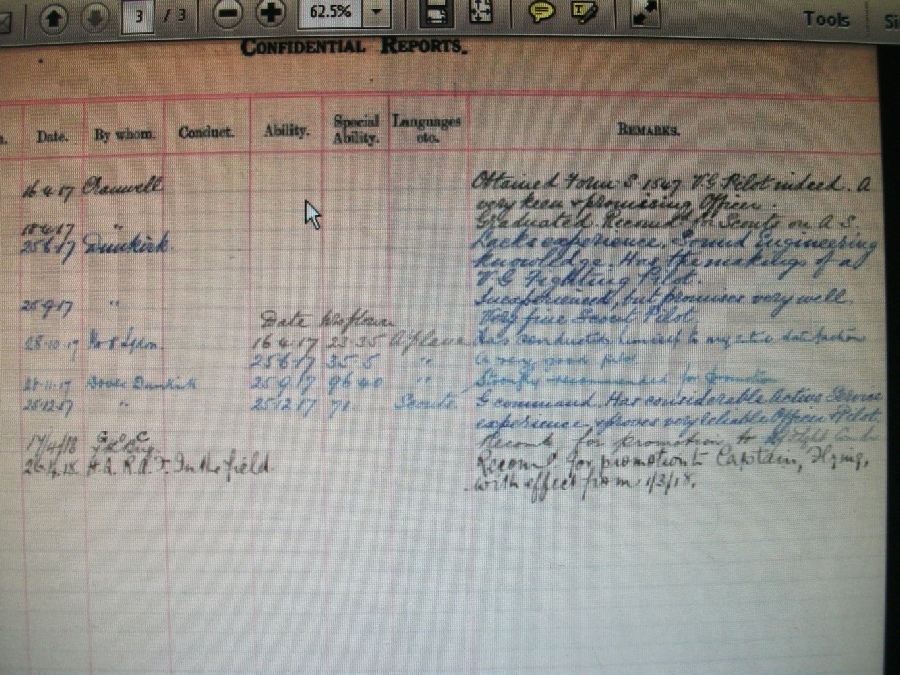 3 / 3 62.5% Tools
CONFIDENTIAL REPORTS.
Date. By whom. Conduct. Ability. Special Ability. Languages etc. REMARKS.
16 4 17 Cranwell Obtained Form S. 1547 V.G Pilot indeed. A
very keen & promising Officer.
" Graduated. Recomd for Scouts on A.S.
25 6 17 Dunkirk Lacks experience. Sound Engineering
knowledge. Has the makings of a
V.G Fighting Pilot.
25 9 17 " Inexperienced, but promises very well.
Date Hrs flown Very fine Scout Pilot.
28 10 17 16 4 17 23 35 Has conducted himself to my satisfaction
25 6 17 35 5 " A very good pilot
Dover Dunkirk 25 9 17 96 40 " Strongly recommended for promotion
25 12 17 " 25 12 17 71 Scouts G command. Has considerable Active Service
experience, & proves very reliable Officer & Pilot
17/4/18 Recomd for promotion to
H.Q. R.A.F. In the field Recomd for promotion to Captain, Flying,
with effect from 1/3/18.